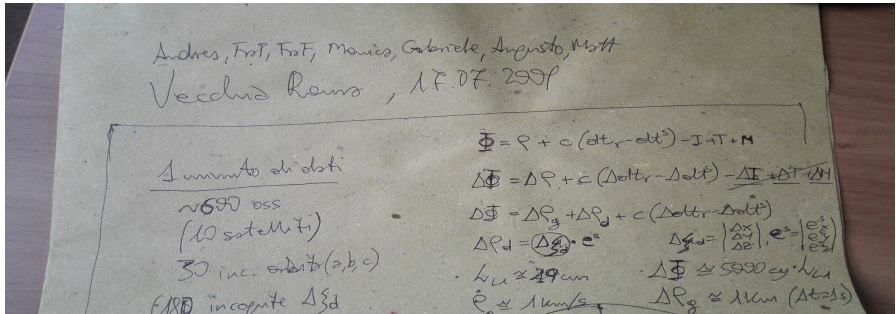 Andres, FraP, FraF, Monica, Gabriele, Augusto, Matt
Vecchia Roma, 17.07.2009
1 minuto di dati
~600 oss
(10 satelliti)
30 inc. ambito (a,b,c)
(-180 incognite Δξd
Φ = ρ + c (dtr - dtˢ) - I + T + M
ΔΦ = Δρ + c (Δdtr - Δdtˢ) - ΔI + ΔT + ΔM
ΔΦ = Δρg + Δρd + c (Δdtr - Δdtˢ)
Δρd = Δξd · eˢ Δξd = |Δx Δy Δz|, eˢ = |eˢx eˢy eˢz|
λL1 ≃ 19 cm ΔΦ ≃ 5000 cy · λL1
≃ 1 km/s Δρg ≃ 1 km (Δt=1s)